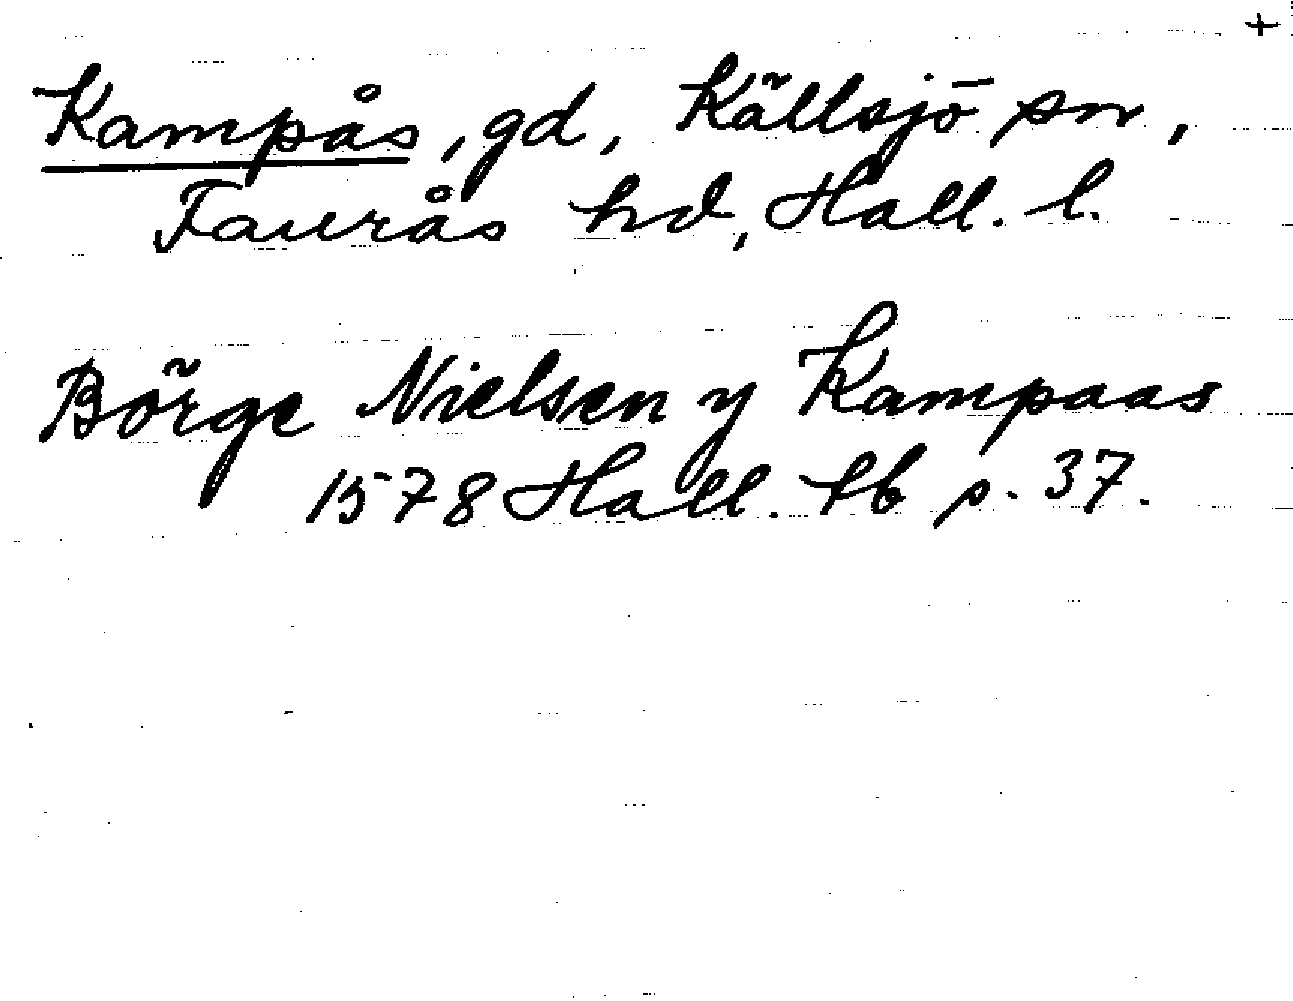 +
Kampås, gd, Källsjö sn,
Faurås hd, Hall. l.
Börge Nielsen y Kampaas
1578 Hall. tb s. 37.